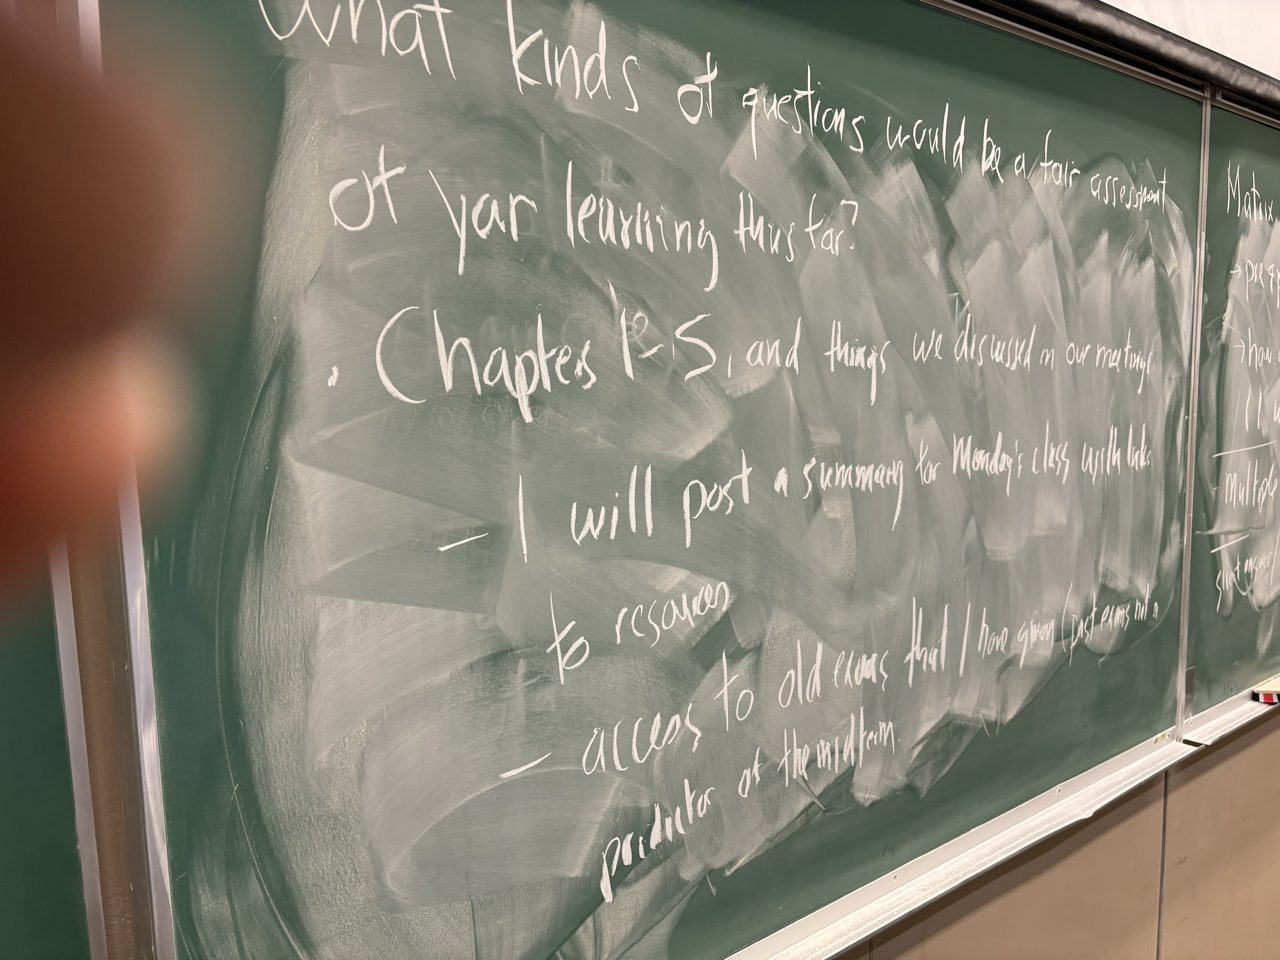 What kinds of questions would be a fair assessment
of your learning thus far?
. Chapters 1-5, and things we discussed in our meetings
- I will post a summary for Monday's class with links
to resources
- access to old exams that I have given (past exams not a
predictor of the midterm.
Matrix
→
→ how
multiple
short answer